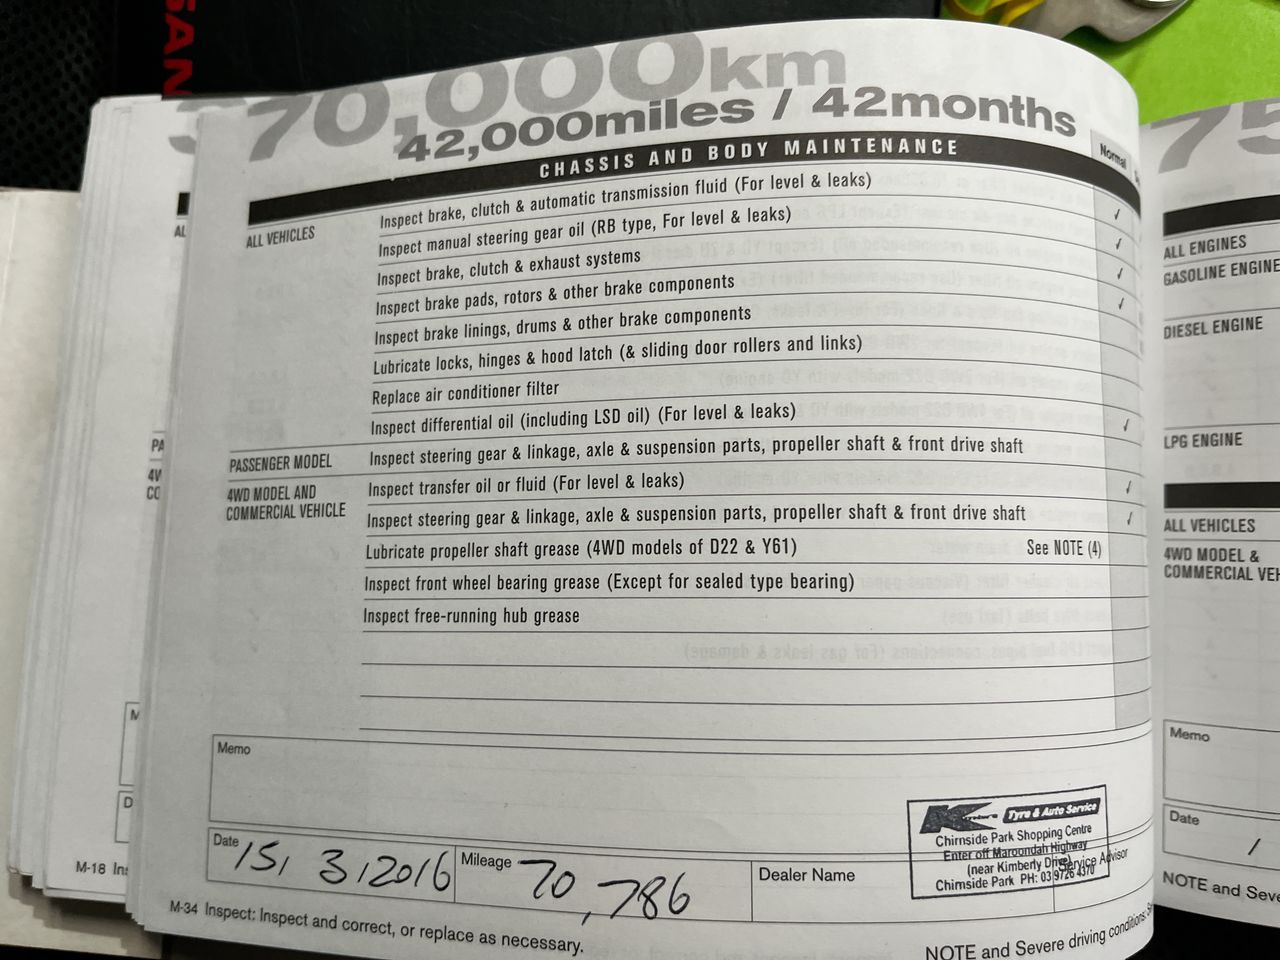 SAN
70,000km
42,000miles / 42months
CHASSIS AND BODY MAINTENANCE
Normal
ALL VEHICLES
Inspect brake, clutch & automatic transmission fluid (For level & leaks) ✓
Inspect manual steering gear oil (RB type, For level & leaks) ✓
Inspect brake, clutch & exhaust systems ✓
Inspect brake pads, rotors & other brake components ✓
Inspect brake linings, drums & other brake components
Lubricate locks, hinges & hood latch (& sliding door rollers and links)
Replace air conditioner filter
Inspect differential oil (including LSD oil) (For level & leaks) ✓
PASSENGER MODEL
Inspect steering gear & linkage, axle & suspension parts, propeller shaft & front drive shaft
4WD MODEL AND
COMMERCIAL VEHICLE
Inspect transfer oil or fluid (For level & leaks) ✓
Inspect steering gear & linkage, axle & suspension parts, propeller shaft & front drive shaft ✓
Lubricate propeller shaft grease (4WD models of D22 & Y61) See NOTE (4)
Inspect front wheel bearing grease (Except for sealed type bearing)
Inspect free-running hub grease
Memo
Date 15/ 3/2016
Mileage 70,786
Dealer Name
Service Advisor
Kmart Tyre & Auto Service
Chirnside Park Shopping Centre
Enter off Maroondah Highway
(near Kimberly Drive)
Chirnside Park PH: 03 9726 4370
M-34 Inspect: Inspect and correct, or replace as necessary.
NOTE and Severe driving conditions:
M-18
75
ALL ENGINES
GASOLINE ENGINE
DIESEL ENGINE
LPG ENGINE
ALL VEHICLES
4WD MODEL &
COMMERCIAL VEH
Memo
Date
/
NOTE and Seve